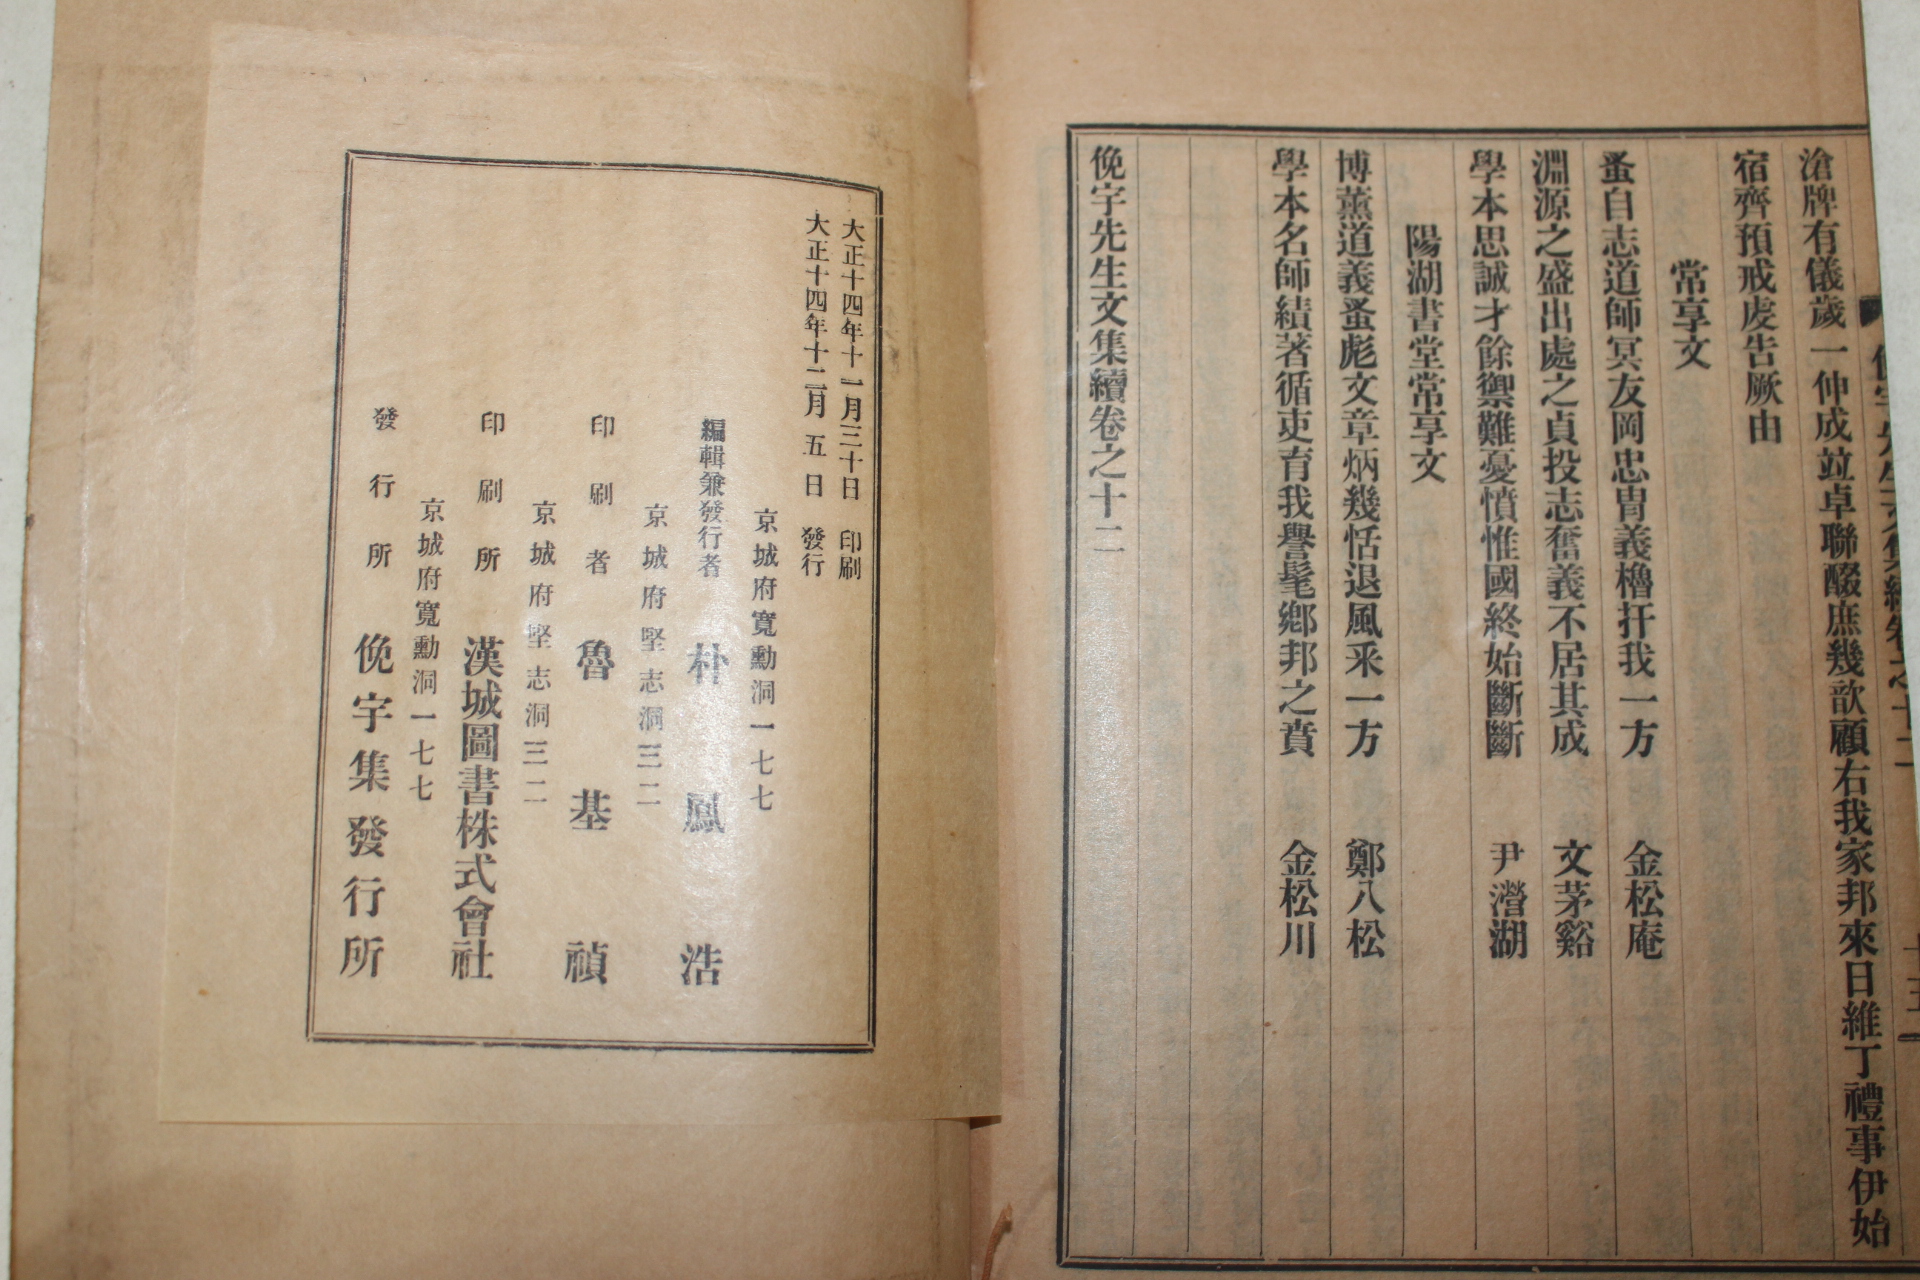 滄牌有儀歲一仲成竝卓聯醊庶幾歆顧右我家邦來日維丁禮事伊始
宿齊預戒虔告厥由
常享文
蚤自志道師冥友岡忠冑義櫓扞我一方 金松庵
淵源之盛出處之貞投志奮義不居其成 文茅谿
學本思誠才餘禦難憂憤惟國終始斷斷 尹濳湖
陽湖書堂常享文
博薰道義蚤彪文章炳幾恬退風采一方 鄭八松
學本名師績著循吏育我譽髦鄕邦之賁 金松川
俛宇先生文集續卷之十二
大正十四年十一月三十日 印刷
大正十四年十二月五日 發行
京城府寬勳洞一七七
編輯兼發行者 朴鳳浩
京城府堅志洞三二
印刷者 魯基禎
京城府堅志洞三二
印刷所 漢城圖書株式會社
京城府寬勳洞一七七
發行所 俛宇集發行所